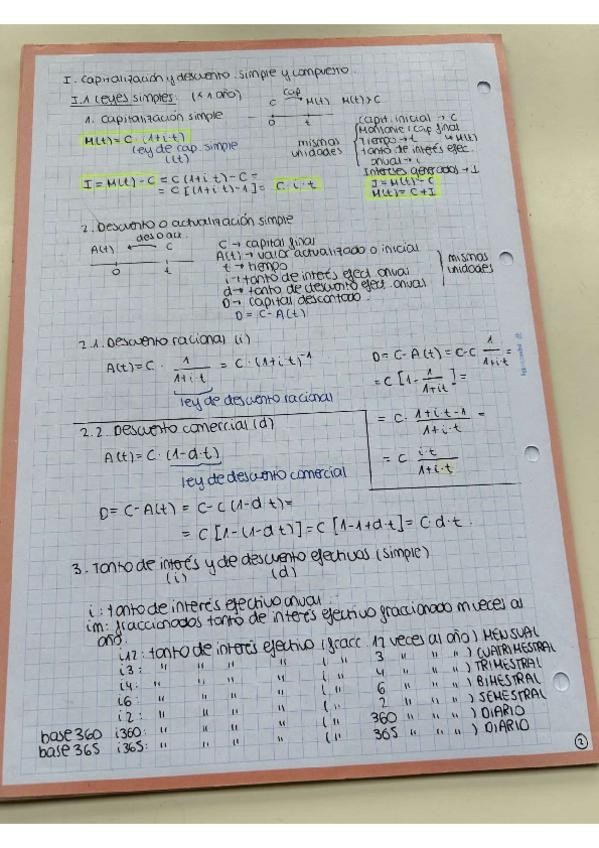 I. Capitalización y descuento simple y compuesto.
I.1 Leyes simples: (≤ 1 año)
1. Capitalización simple
cap
C M(t) M(t) > C
0 t
M(t) = C · (1+i·t)
ley de cap. simple
(t)
I = M(t) - C = C(1+i·t) - C =
= C [(1+i·t) - 1] = C·i·t
mismas
unidades
Capit. inicial → C
Montante: cap final
↳ M(t)
Tiempo → t
tanto de interés efec.
anual → i
Intereses generados → I
I = M(t) - C
M(t) = C + I
2. Descuento o actualización simple
des o act.
A(t) C
0 t
C → capital final
A(t) → valor actualizado o inicial
t → tiempo
i → tanto de interés efect. anual
d → tanto de descuento efect. anual
D → capital descontado.
D = C - A(t)
mismas
unidades
2.1. Descuento racional (i)
A(t) = C · 1/(1+i·t) = C · (1+i·t)⁻¹
ley de descuento racional
D = C - A(t) = C - C 1/(1+i·t) =
= C [1 - 1/(1+it)] =
= C · (1+i·t-1)/(1+i·t) =
= C i·t/(1+i·t)
2.2. Descuento comercial (d)
A(t) = C · (1-d·t)
ley de descuento comercial
D = C - A(t) = C - C (1-d·t) =
= C [1-(1-d·t)] = C [1-1+d·t] = C·d·t.
3. Tanto de interés y de descuento efectivos (simple)
(i) (d)
i: tanto de interés efectivo anual.
im: fraccionados tanto de interés efectivo fraccionado m veces al
año.
i12: tanto de interés efectivo (fracc. 12 veces al año) MENSUAL
i3: " " " " " ( " 3 " " ") CUATRIMESTRAL
i4: " " " " " ( " 4 " " ") TRIMESTRAL
i6: " " " " " ( " 6 " " ") BIMESTRAL
i2: " " " " " ( " 2 " " ") SEMESTRAL
base 360 i360: " " " " " ( " 360 " " ") DIARIO
base 365 i365: " " " " " ( " 365 " " ") DIARIO
2